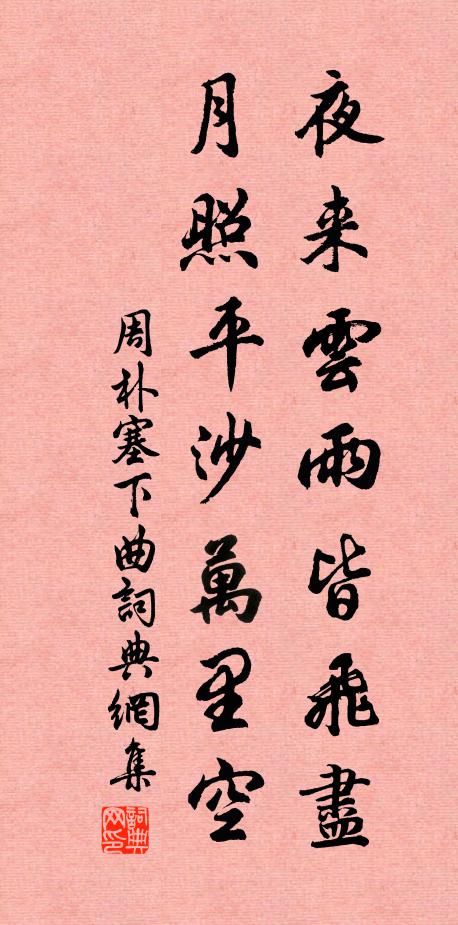 夜来雲雨皆飛盡
月照平沙萬里空
周朴塞下曲詞典網集
詞典网印